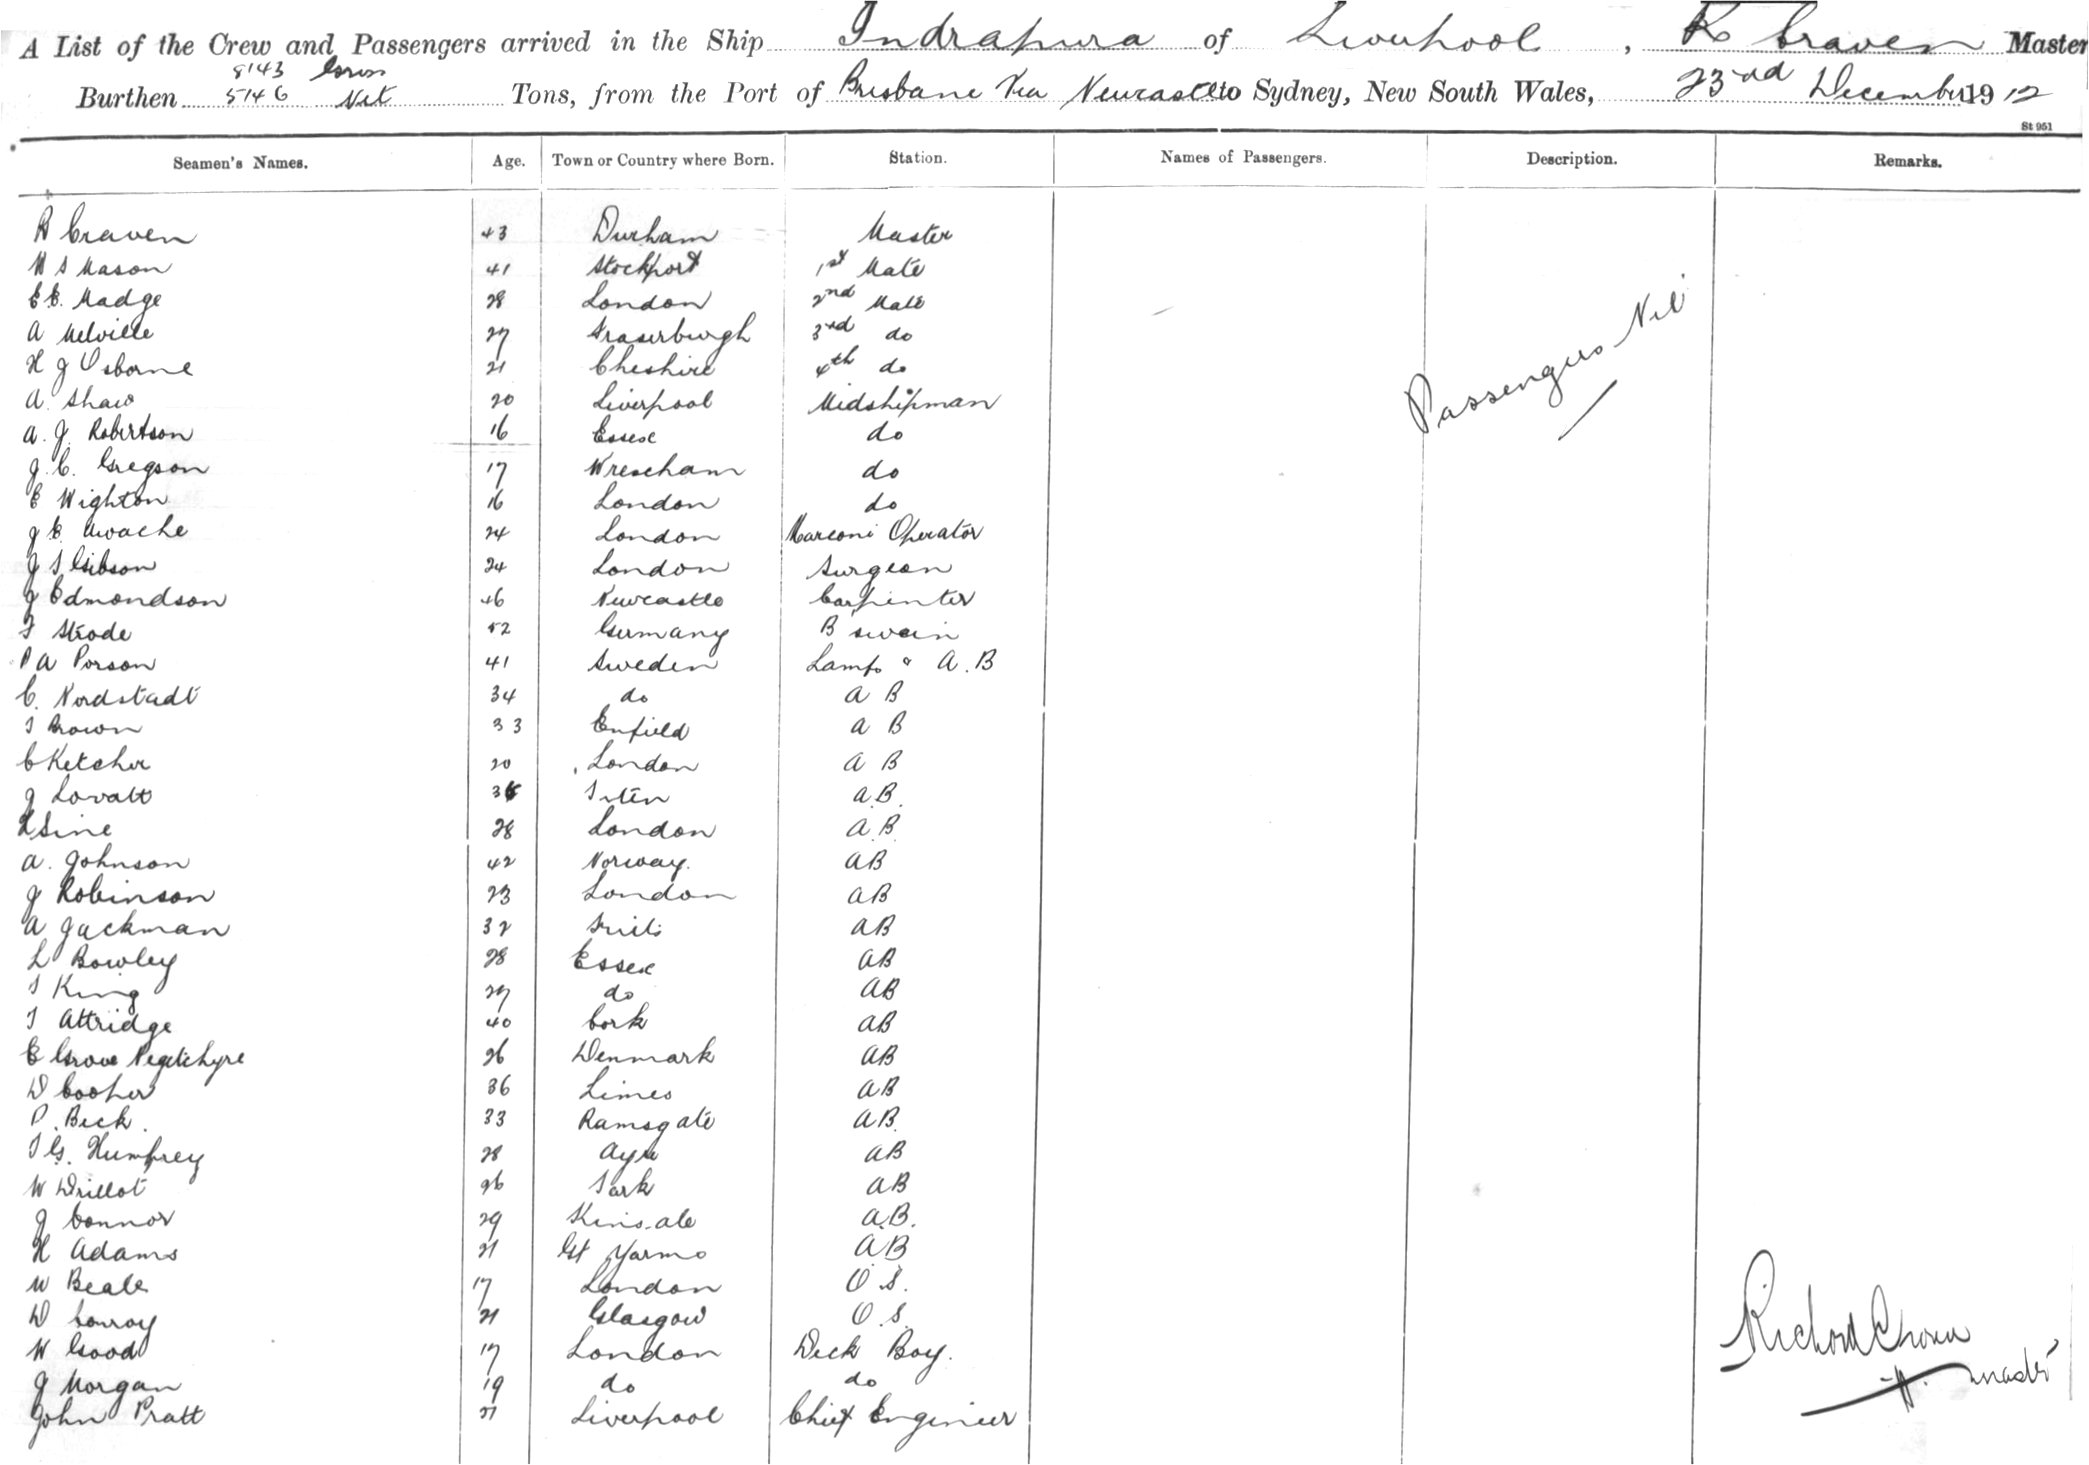 A List of the Crew and Passengers arrived in the Ship Indrapura of Liverpool, R Craven Master
8143 Gross
Burthen 5146 Net Tons, from the Port of Brisbane Via Newcastle to Sydney, New South Wales, 23rd December 1912
St 951
Seamen's Names. Age. Town or Country where Born. Station. Names of Passengers. Description. Remarks.
R Craven 43 Durham Master
W S Mason 41 Stockport 1st Mate
E E. Madge 28 London 2nd Mate
A Melville 27 Fraserburgh 3rd do
H J Osborne 21 Cheshire 4th do
A. Shaw 20 Liverpool Midshipman
A. J. Robertson 16 Essex do
J. C. Gregson 17 Wrexham do
E Wighton 16 London do
J E 24 London Marconi Operator
J S Gibson 24 London Surgeon
J Edmondson 46 Newcastle Carpenter
F Strode 52 Germany B'swain
P A Porson 41 Sweden Lamps & A.B
C. Nordstadt 34 do A B
T Brown 33 Enfield A B
C Ketcher 20 London A B
J Lovatt A.B.
L Sine 28 London A.B.
A. Johnson 42 Norway. AB
J Robinson 23 London AB
A Jackman 32 AB
L Bowley 28 Essex AB
T King 27 do AB
T Attridge 40 Cork AB
E Grove 26 Denmark AB
D Cooper 36 Limes AB
P. Beck. 33 Ramsgate AB.
T G. Humfrey 28 Ayr AB
W Drillot 26 Sark AB
J Connor 29 Kinsale A.B.
H Adams 21 Gt Yarmo A.B
W Beale 17 London O.S.
D Conroy 21 Glasgow O.S.
W Good 17 London Deck Boy.
J Morgan 19 do do
John Pratt Liverpool Chief Engineer
Passengers Nil
Richard Craven
Master